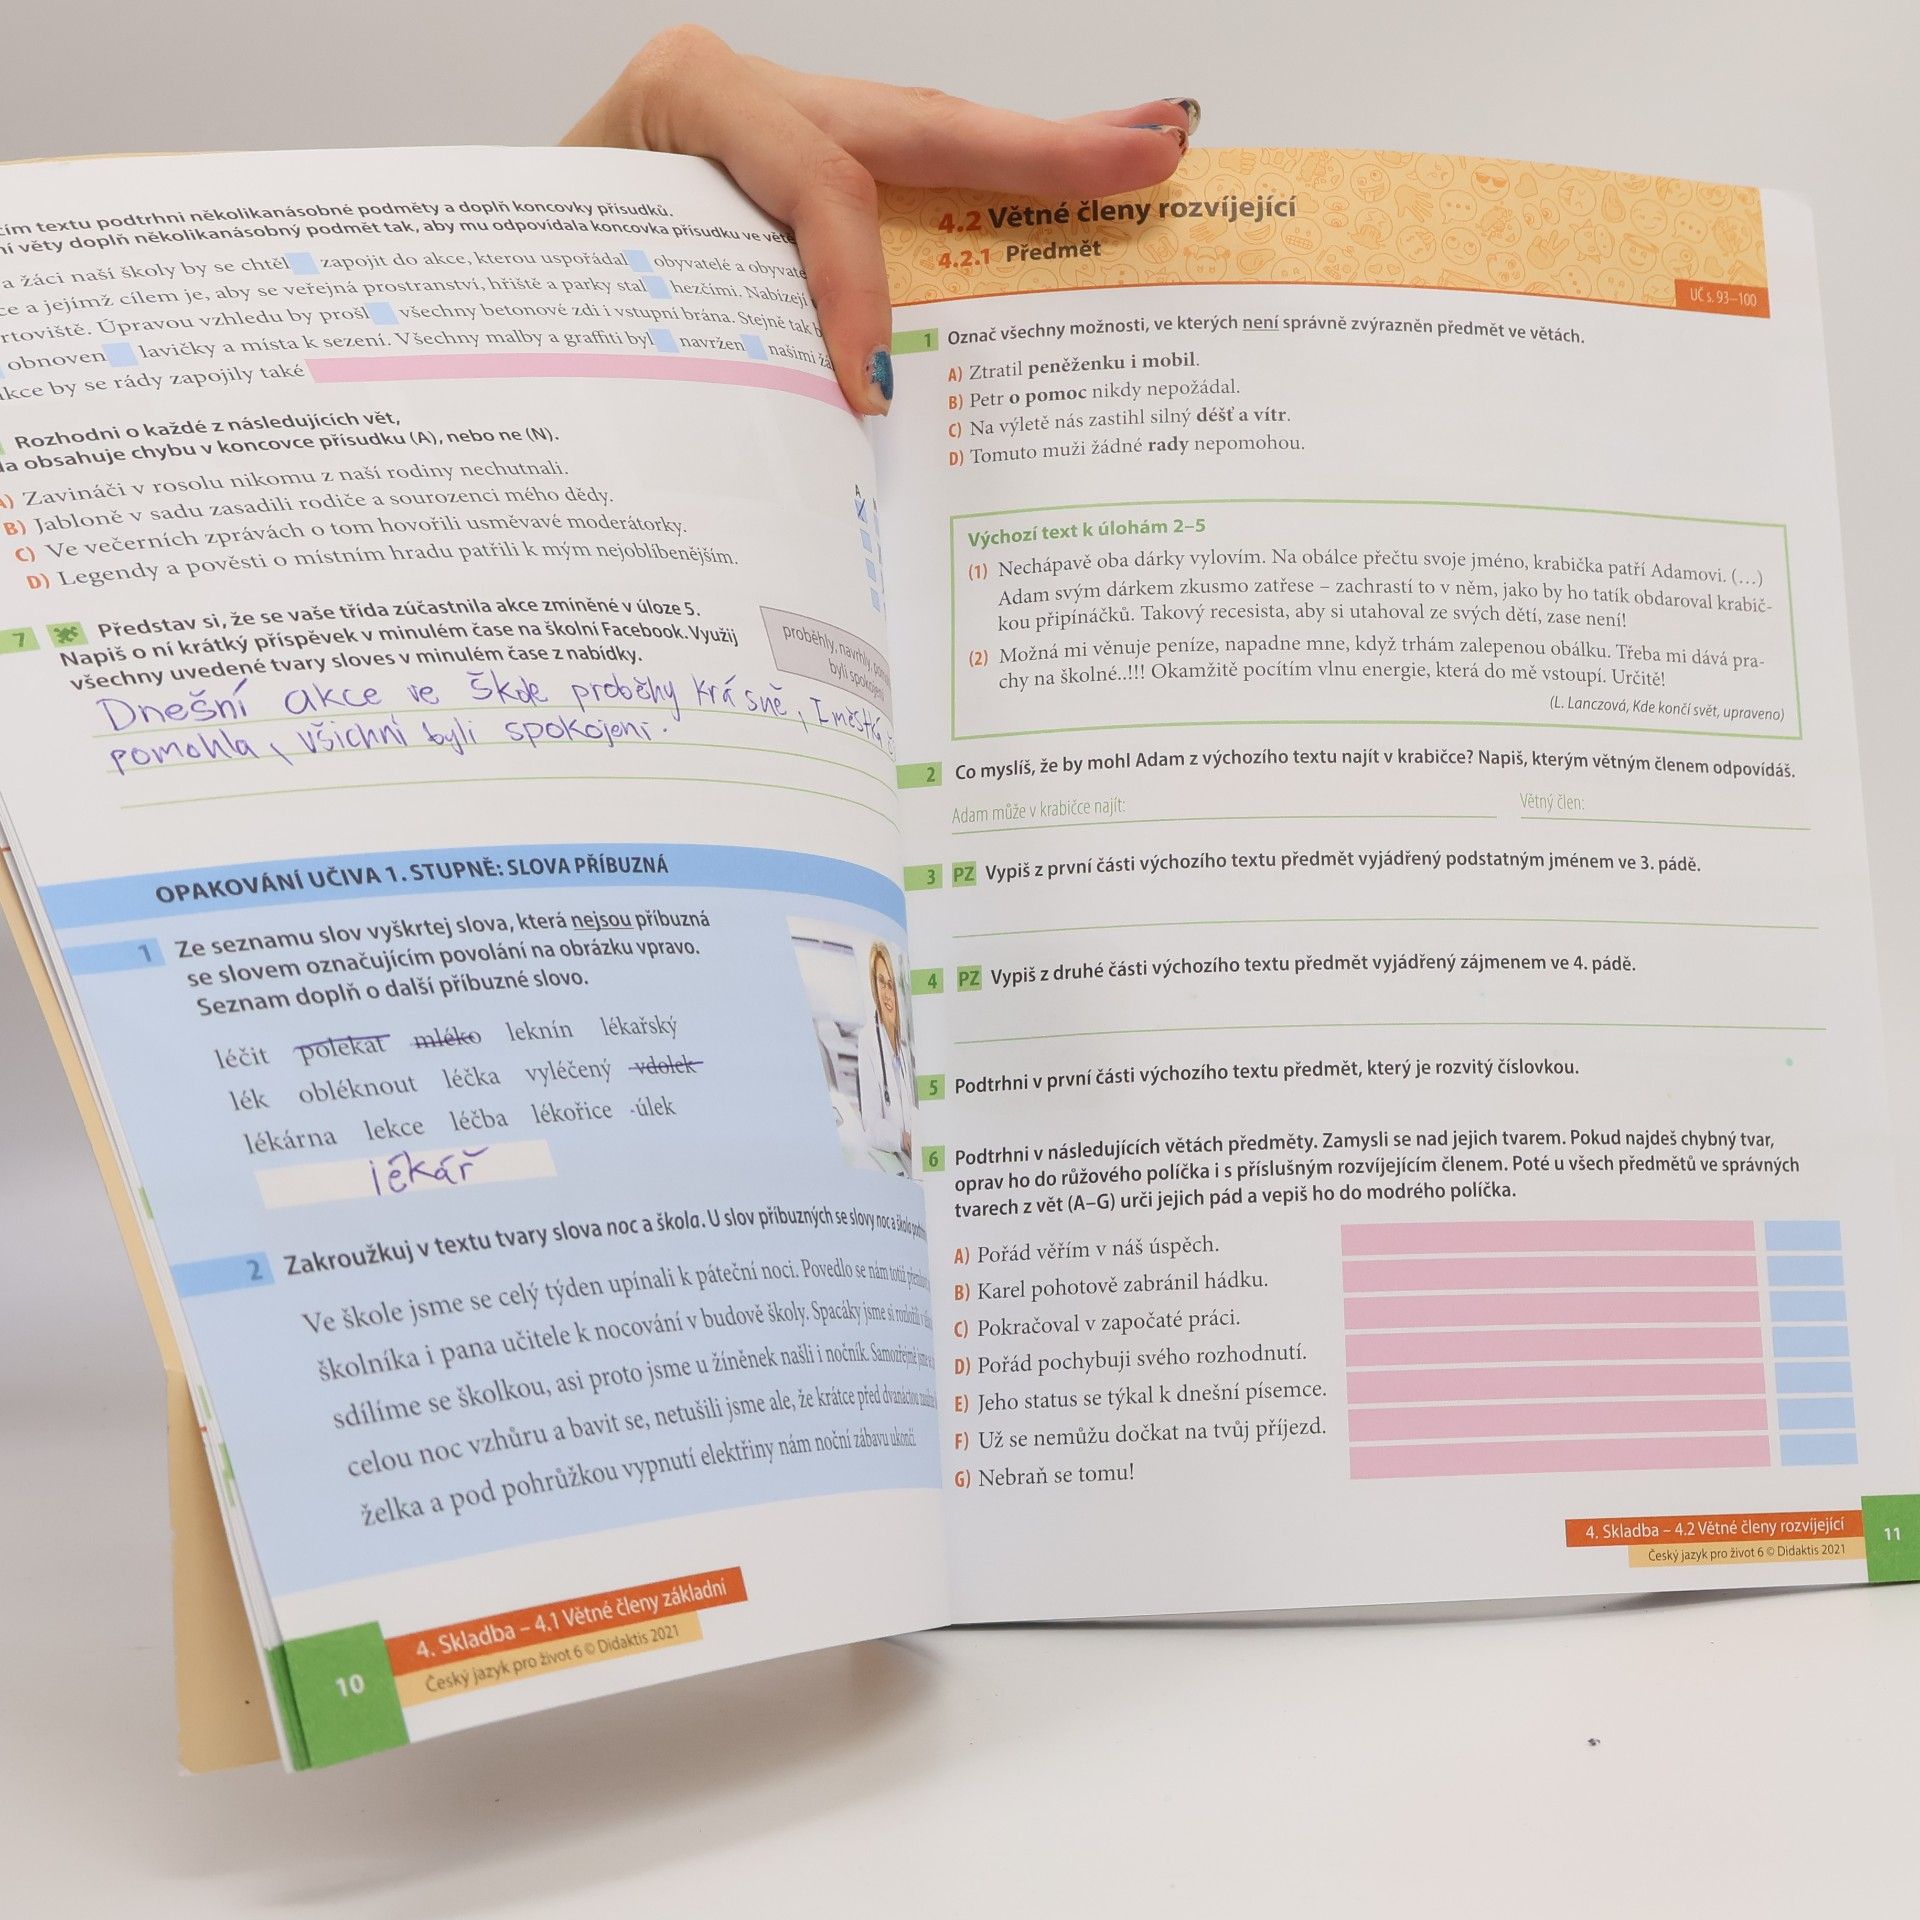 textu podtrhni několikanásobné podměty a doplň koncovky přísudků.
věty doplň několikanásobný podmět tak, aby mu odpovídala koncovka přísudku ve
a žáci naší školy by se chtěl zapojit do akce, kterou uspořádal obyvatelé a
a jejímž cílem je, aby se veřejná prostranství, hřiště a parky stal hezčími. Nabízejí
Úpravou vzhledu by prošl všechny betonové zdi i vstupní brána. Stejně tak
obnoven lavičky a místa k sezení. Všechny malby a graffiti byl navržen našimi
by se rády zapojily také
Rozhodni o každé z následujících vět,
obsahuje chybu v koncovce přísudku (A), nebo ne (N).
A
Zavináči v rosolu nikomu z naší rodiny nechutnali.
B) Jabloně v sadu zasadili rodiče a sourozenci mého dědy.
C) Ve večerních zprávách o tom hovořili usměvavé moderátorky.
D) Legendy a pověsti o místním hradu patřili k mým nejoblíbenějším.
7 Představ si, že se vaše třída zúčastnila akce zmíněné v úloze 5.
Napiš o ní krátký příspěvek v minulém čase na školní Facebook. Využij
všechny uvedené tvary sloves v minulém čase z nabídky.
proběhly, navrhly,
byli spokojeni
Dnešní akce ve škole proběhy krásně,
pomohla, všichni byli spokojeni.
OPAKOVÁNÍ UČIVA 1. STUPNĚ: SLOVA PŘÍBUZNÁ
1 Ze seznamu slov vyškrtej slova, která nejsou příbuzná
se slovem označujícím povolání na obrázku vpravo.
Seznam doplň o další příbuzné slovo.
léčit polekat mléko leknín lékařský
lék obléknout léčka vyléčený vdolek
lékárna lekce léčba lékořice úlek
lékář
2 Zakroužkuj v textu tvary slova noc a škola. U slov příbuzných se slovy noc a škola
Ve škole jsme se celý týden upínali k páteční noci. Povedlo se nám totiž
školníka i pana učitele k nocování v budově školy. Spacáky jsme si rozložili
sdílíme se školkou, asi proto jsme u žíněnek našli i nočník. Samozřejmě jsme
celou noc vzhůru a bavit se, netušili jsme ale, že krátce před dvanáctou
želka a pod pohrůžkou vypnutí elektřiny nám noční zábavu ukončí.
10
4. Skladba – 4.1 Větné členy základní
Český jazyk pro život 6 © Didaktis 2021
4.2 Větné členy rozvíjející
4.2.1 Předmět
UČ s. 93–100
1 Označ všechny možnosti, ve kterých není správně zvýrazněn předmět ve větách.
A) Ztratil peněženku i mobil.
B) Petr o pomoc nikdy nepožádal.
C) Na výletě nás zastihl silný déšť a vítr.
D) Tomuto muži žádné rady nepomohou.
Výchozí text k úlohám 2–5
(1) Nechápavě oba dárky vylovím. Na obálce přečtu svoje jméno, krabička patří Adamovi. (…)
Adam svým dárkem zkusmo zatřese – zachrastí to v něm, jako by ho tatík obdaroval krabič-
kou připínáčků. Takový recesista, aby si utahoval ze svých dětí, zase není!
(2) Možná mi věnuje peníze, napadne mne, když trhám zalepenou obálku. Třeba mi dává pra-
chy na školné..!!! Okamžitě pocítím vlnu energie, která do mě vstoupí. Určitě!
(L. Lanczová, Kde končí svět, upraveno)
2 Co myslíš, že by mohl Adam z výchozího textu najít v krabičce? Napiš, kterým větným členem odpovídáš.
Adam může v krabičce najít: Větný člen:
3 PZ Vypiš z první části výchozího textu předmět vyjádřený podstatným jménem ve 3. pádě.
4 PZ Vypiš z druhé části výchozího textu předmět vyjádřený zájmenem ve 4. pádě.
5 Podtrhni v první části výchozího textu předmět, který je rozvitý číslovkou.
6 Podtrhni v následujících větách předměty. Zamysli se nad jejich tvarem. Pokud najdeš chybný tvar,
oprav ho do růžového políčka i s příslušným rozvíjejícím členem. Poté u všech předmětů ve správných
tvarech z vět (A–G) urči jejich pád a vepiš ho do modrého políčka.
A) Pořád věřím v náš úspěch.
B) Karel pohotově zabránil hádku.
C) Pokračoval v započaté práci.
D) Pořád pochybuji svého rozhodnutí.
E) Jeho status se týkal k dnešní písemce.
F) Už se nemůžu dočkat na tvůj příjezd.
G) Nebraň se tomu!
4. Skladba – 4.2 Větné členy rozvíjející
Český jazyk pro život 6 © Didaktis 2021
11